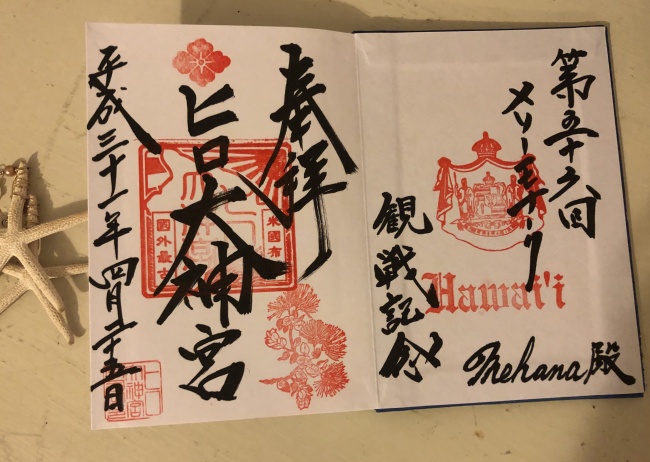 第五十六回
メリーモナーク
Hawai'i
観戦記念
Mehana殿
奉拝
米國布
ヒロ大神宮
國外最古
平成三十一年四月二十五日